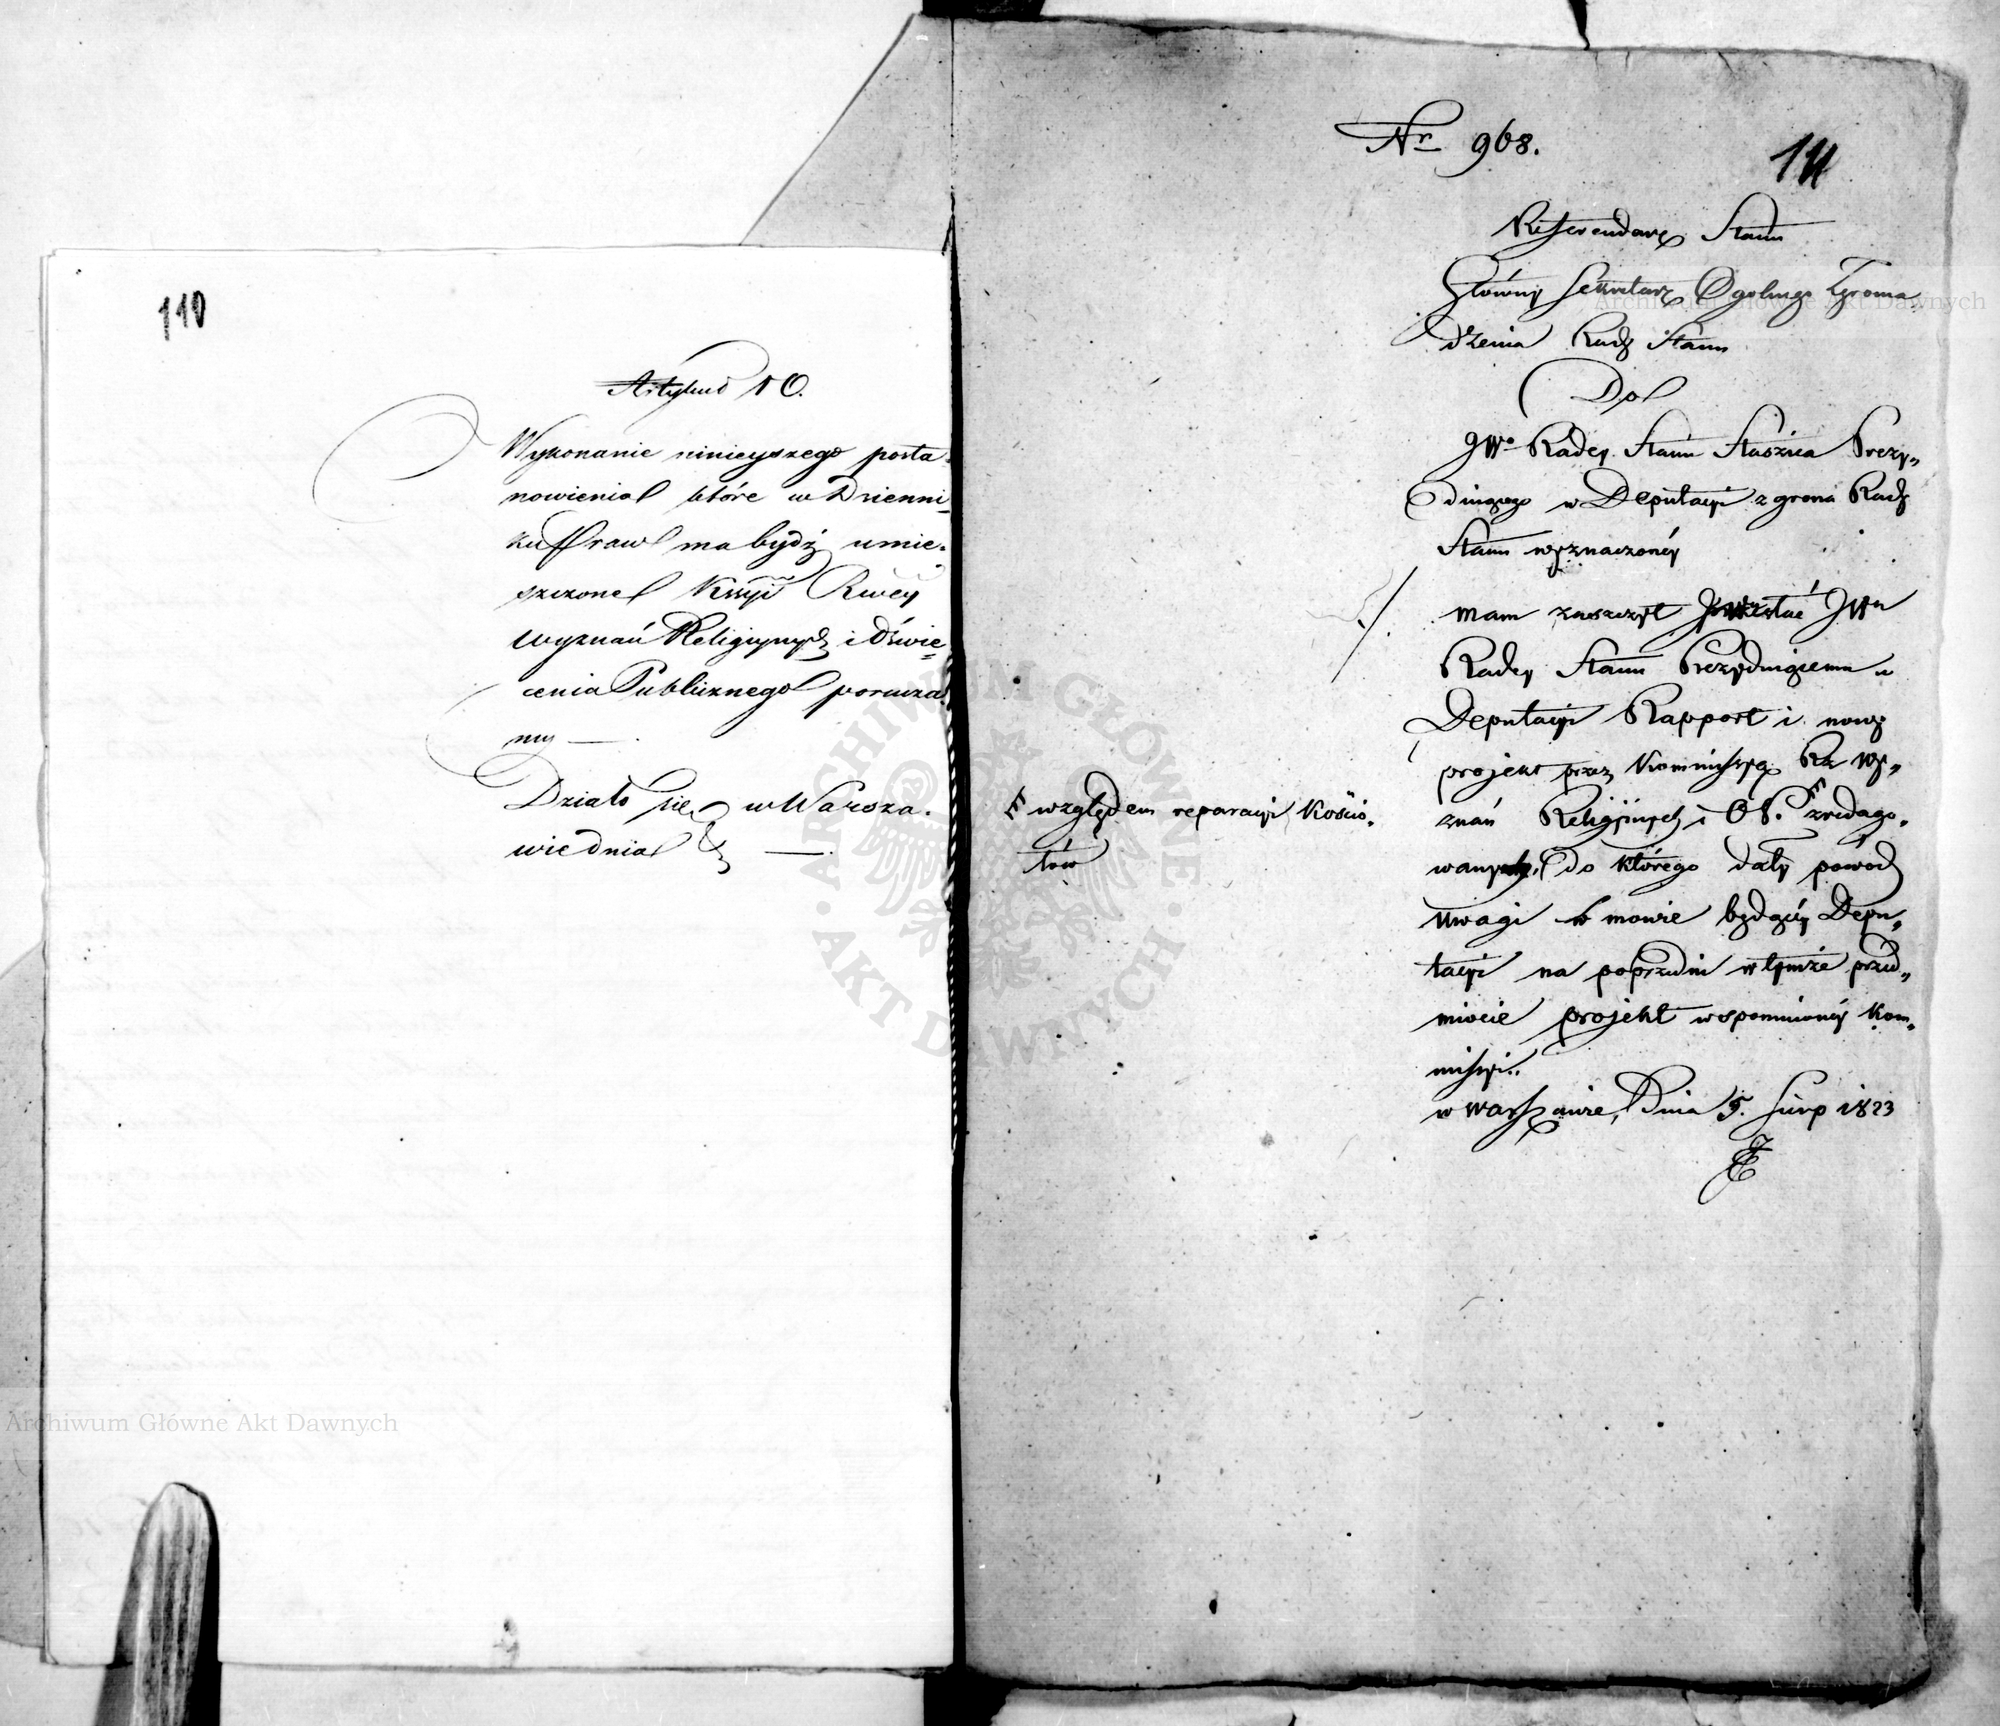 110
Artykuł 10.
Wykonanie ninieyszego posta-
nowienia które w Dzienni-
ku Praw ma bydź umie-
szczone Kmsyi Rwéy
wyznań Religiynych i Oświe-
cenia Publicznego porucza-
my —.
Działo się w Warsza-
wie dnia —.
Nr 968.
111
Referendarz Stanu
Główny Sekretarz Ogolnego Zgroma
dzenia Rady Stanu
Do
JWo Radcy Stanu Staszica Prezy„
duiącego w Deputacyi z grona Rady
Stanu wyznaczonéy
mam zaszczyt przesłać JWu
Radcy Stanu Prezyduiącemu w
Deputacyi Rapport i nowy
projekt przez Kommissyą Rz Wy„
znań Religijnych i OP. zredago„
wany, do którego dały powód
uwagi w mowie będącéy Depu„
tacyi na poprzedni w tymże przed„
miocie projekt wspomnionéy Kom„
missyi.
w Warszawie, Dnia 5. Sierp 1823
F względem reparacyi Kościo„
łów
ARCHIWUM GŁÓWNE AKT DAWNYCH
Archiwum Główne Akt Dawnych
Archiwum Główne Akt Dawnych